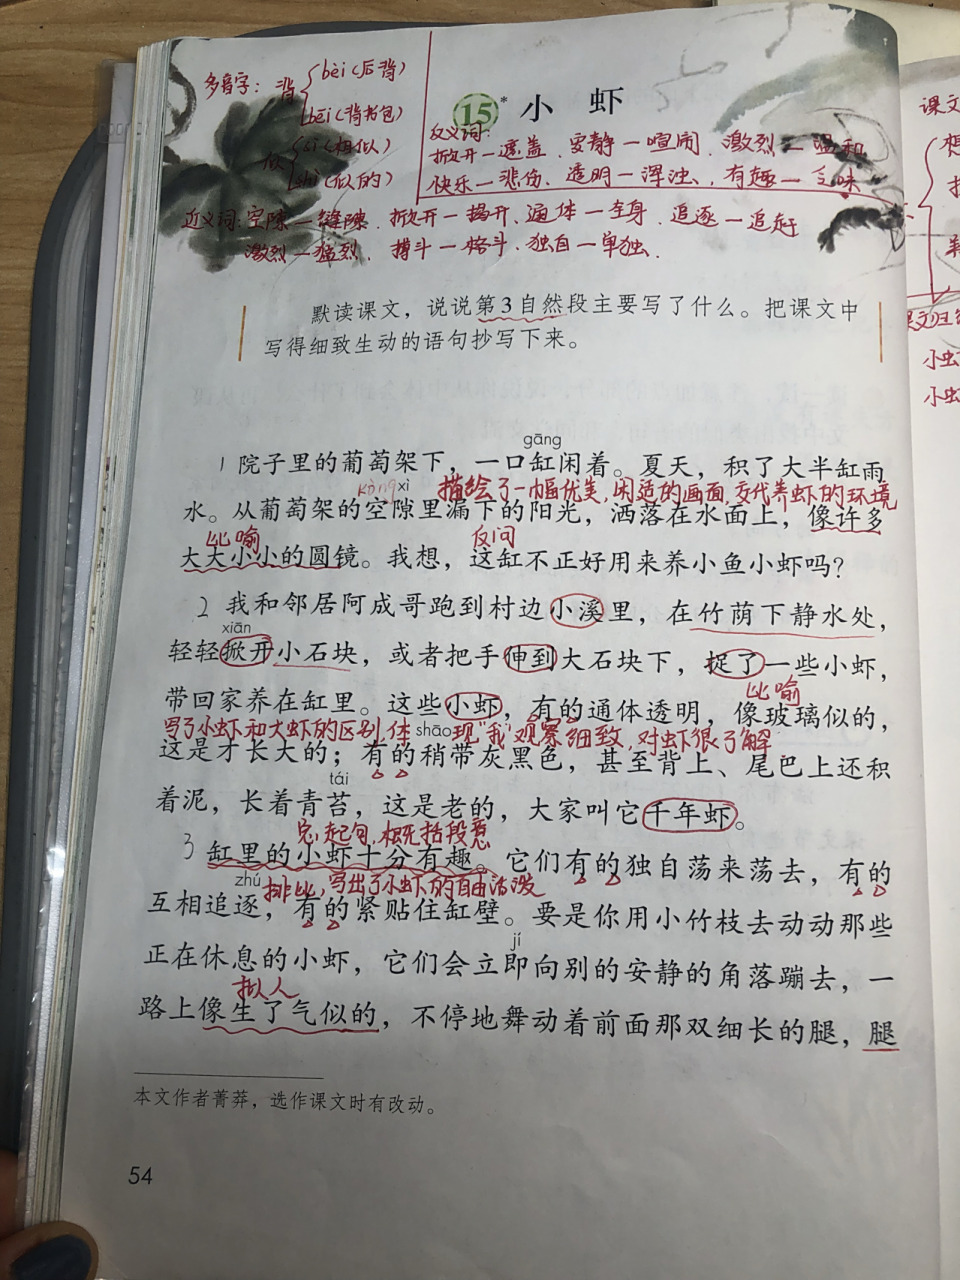 多音字：背 bèi（后背）
bēi（背书包）
似 sì（相似）
shì（似的）
15* 小 虾
反义词：
掀开—遮盖 安静—喧闹 激烈—温和
快乐—悲伤、透明—浑浊、有趣—乏味
近义词：空隙—缝隙、掀开—揭开、遍体—全身、追逐—追赶
激烈—猛烈、搏斗—格斗、独自—单独、
默读课文，说说第3自然段主要写了什么。把课文中
写得细致生动的语句抄写下来。
gāng
1 院子里的葡萄架下，一口缸闲着。夏天，积了大半缸雨
kòng xì 描绘了一幅优美、闲适的画面，交代养虾的环境
水。从葡萄架的空隙里漏下的阳光，洒落在水面上，像许多
比喻 反问
大大小小的圆镜。我想，这缸不正好用来养小鱼小虾吗？
2 我和邻居阿成哥跑到村边小溪里，在竹荫下静水处，
xiān
轻轻掀开小石块，或者把手伸到大石块下，捉了一些小虾，
比喻
带回家养在缸里。这些小虾，有的通体透明，像玻璃似的，
写了小虾和大虾的区别，体 shāo 现“我”观察细致，对虾很了解
这是才长大的；有的稍带灰黑色，甚至背上、尾巴上还积
tái
着泥，长着青苔，这是老的，大家叫它千年虾。
总起句，概括段意
3 缸里的小虾十分有趣。它们有的独自荡来荡去，有的
zhú 排比，写出了小虾的自由活泼
互相追逐，有的紧贴住缸壁。要是你用小竹枝去动动那些
jí
正在休息的小虾，它们会立即向别的安静的角落蹦去，一
拟人
路上像生了气似的，不停地舞动着前面那双细长的腿，腿
本文作者菁莽，选作课文时有改动。
54
课文
小虫
小虫